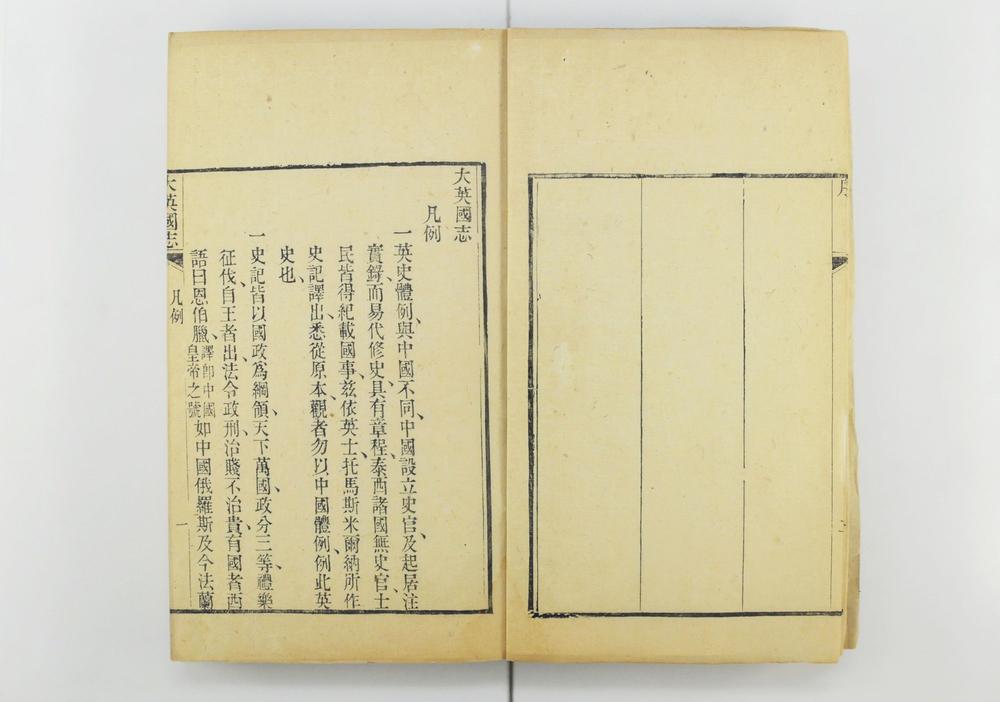 序
大英國志
凡例
一英史體例、與中國不同、中國設立史官、及起居注
實錄、而易代修史、具有章程、泰西諸國無史官、士
民皆得紀載國事、茲依英士托馬斯米爾納所作
史記譯出、悉從原本、觀者勿以中國體例、例此英
史也、
一史記皆以國政爲綱領、天下萬國、政分三等、禮樂
征伐、自王者出、法令政刑、治賤不治貴、有國者西
語曰恩伯臘、譯卽中國皇帝之號如中國俄羅斯及今法蘭
大英國志
凡例
一